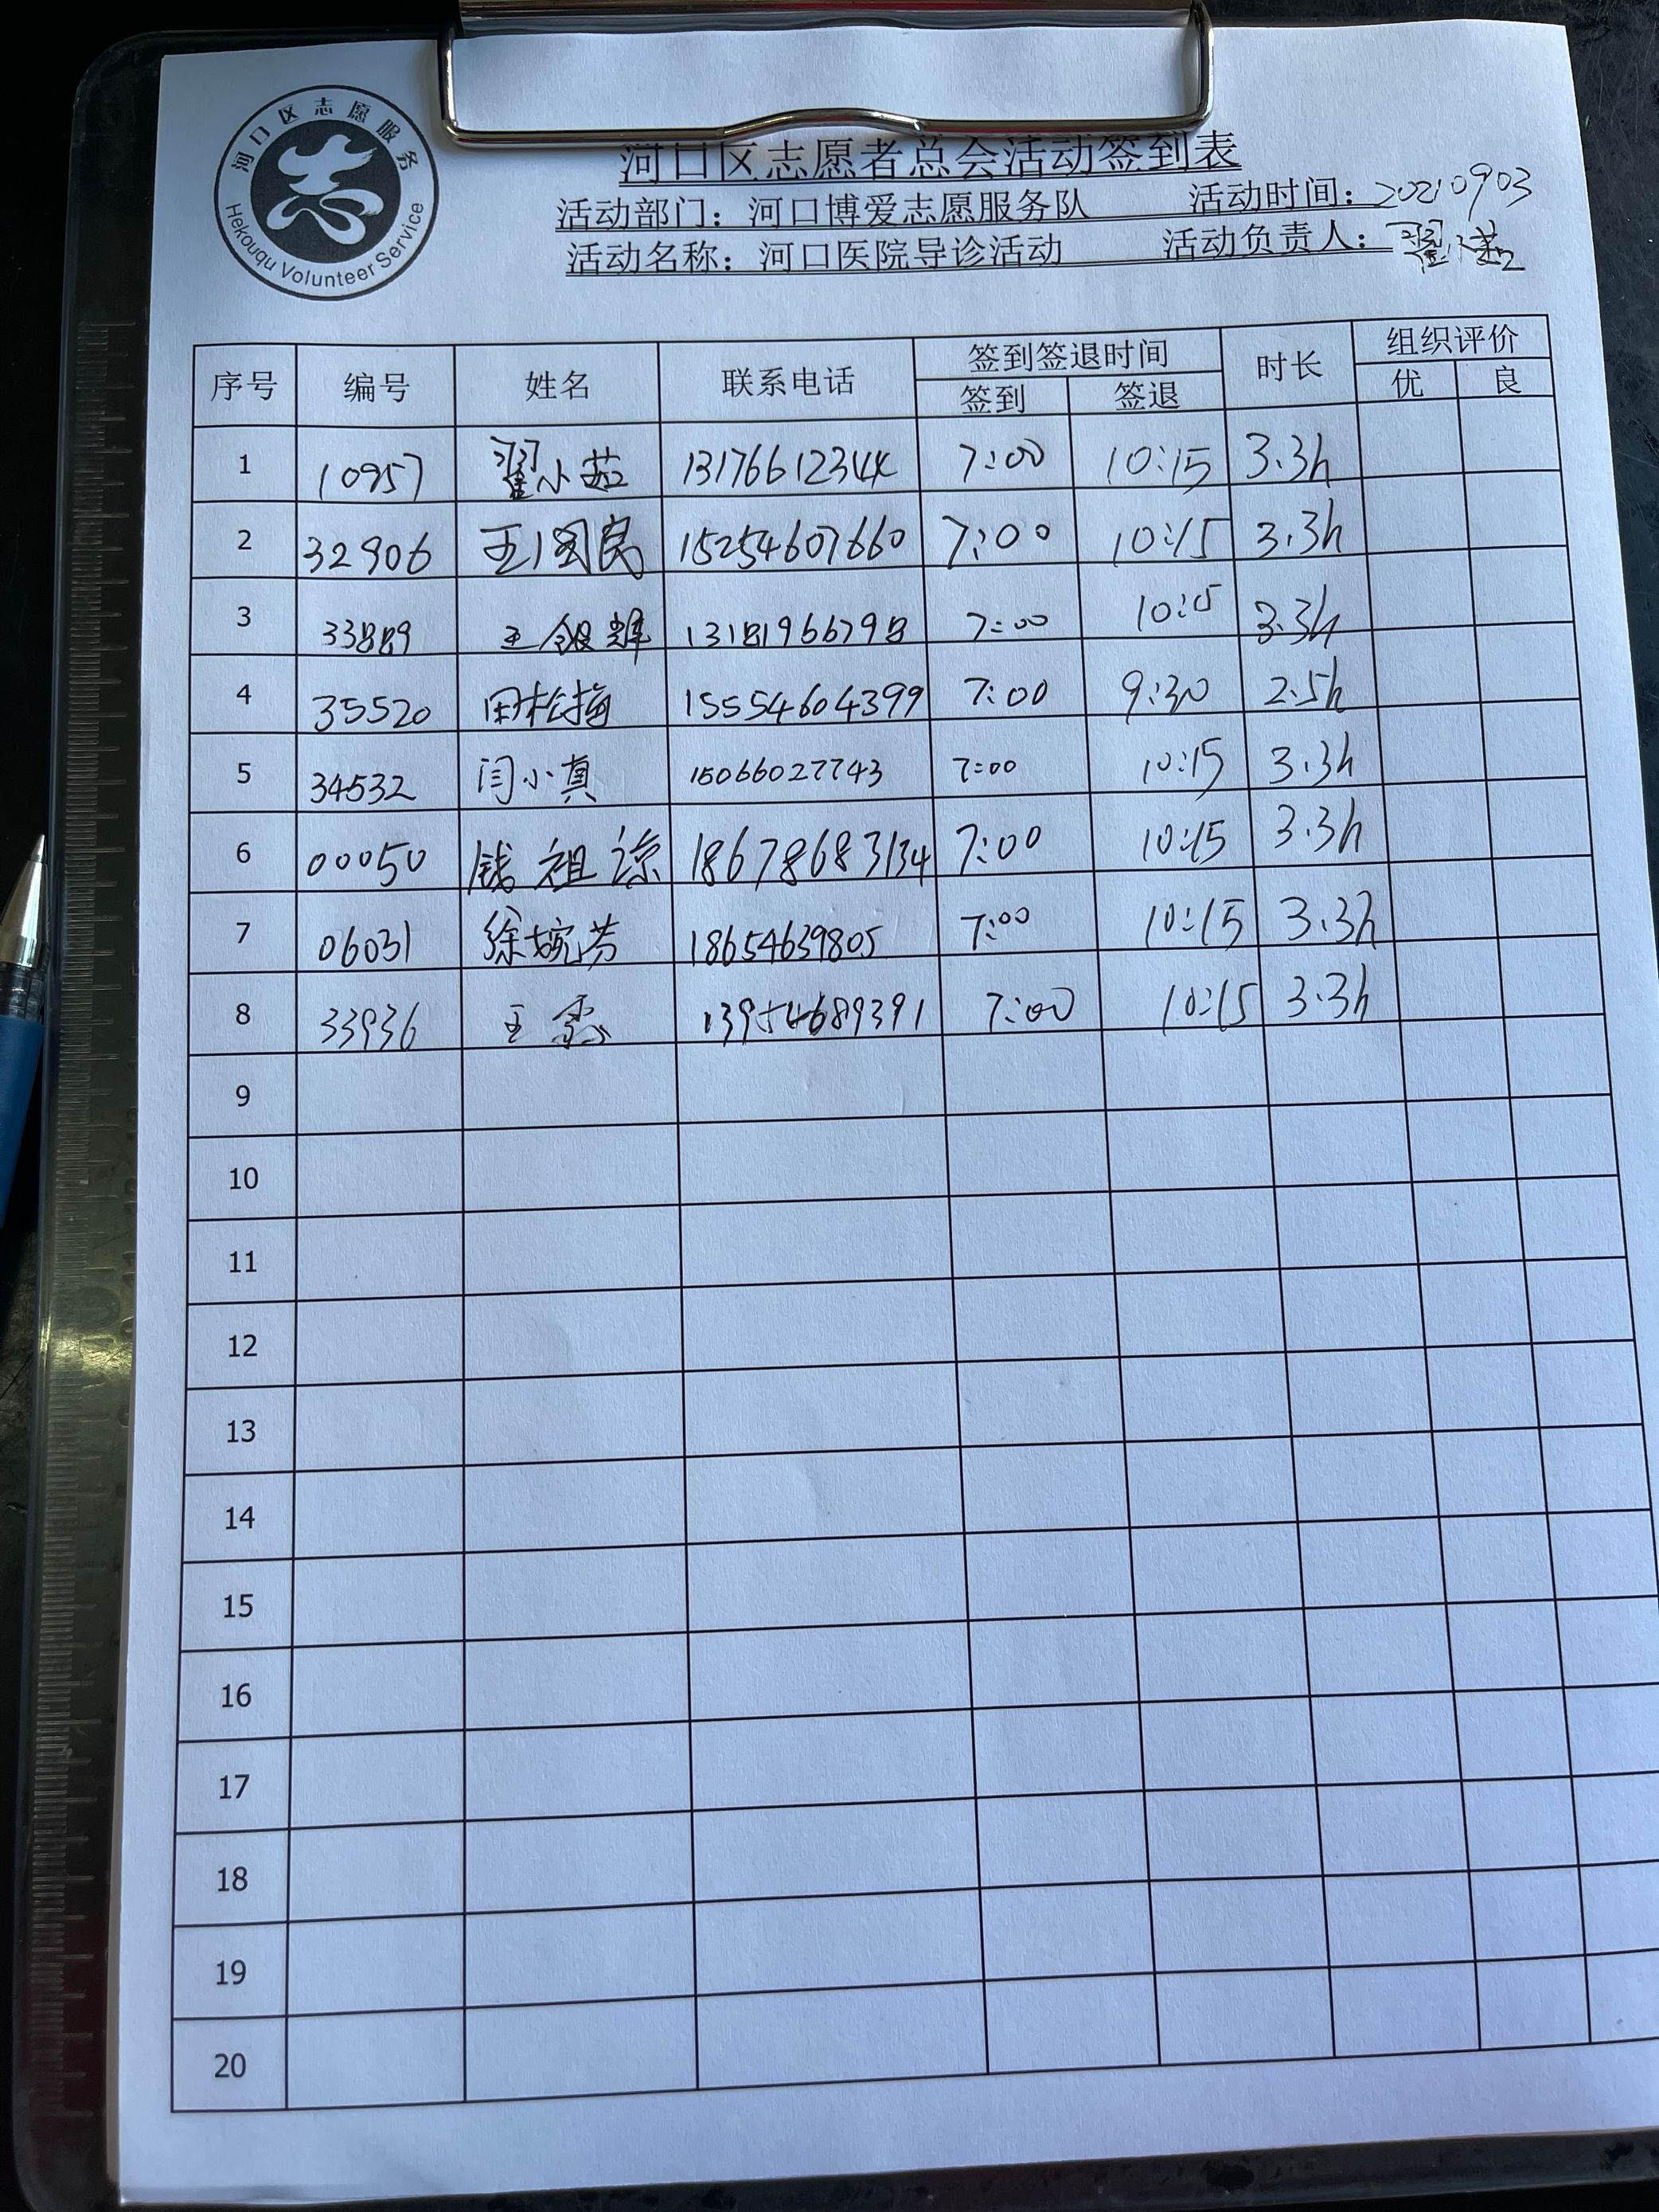 河口区志愿服务
Hekouqu Volunteer Service
河口区志愿者总会活动签到表
活动部门：河口博爱志愿服务队 活动时间：20210903
活动名称：河口医院导诊活动 活动负责人：翟小茹
序号 编号 姓名 联系电话 签到签退时间 时长 组织评价
签到 签退 优 良
1 10957 翟小茹 13176612344 7:00 10:15 3.3h
2 32906 王国民 15254607660 7:00 10:15 3.3h
3 33889 王银辉 13181966798 7:00 10:15 3.3h
4 35520 田松梅 15554604399 7:00 9:30 2.5h
5 34532 闫小真 15066027743 7:00 10:15 3.3h
6 00050 钱祖凉 18678683134 7:00 10:15 3.3h
7 06031 徐婉芳 18654639805 7:00 10:15 3.3h
8 33936 王 13954689391 7:00 10:15 3.3h
9
10
11
12
13
14
15
16
17
18
19
20